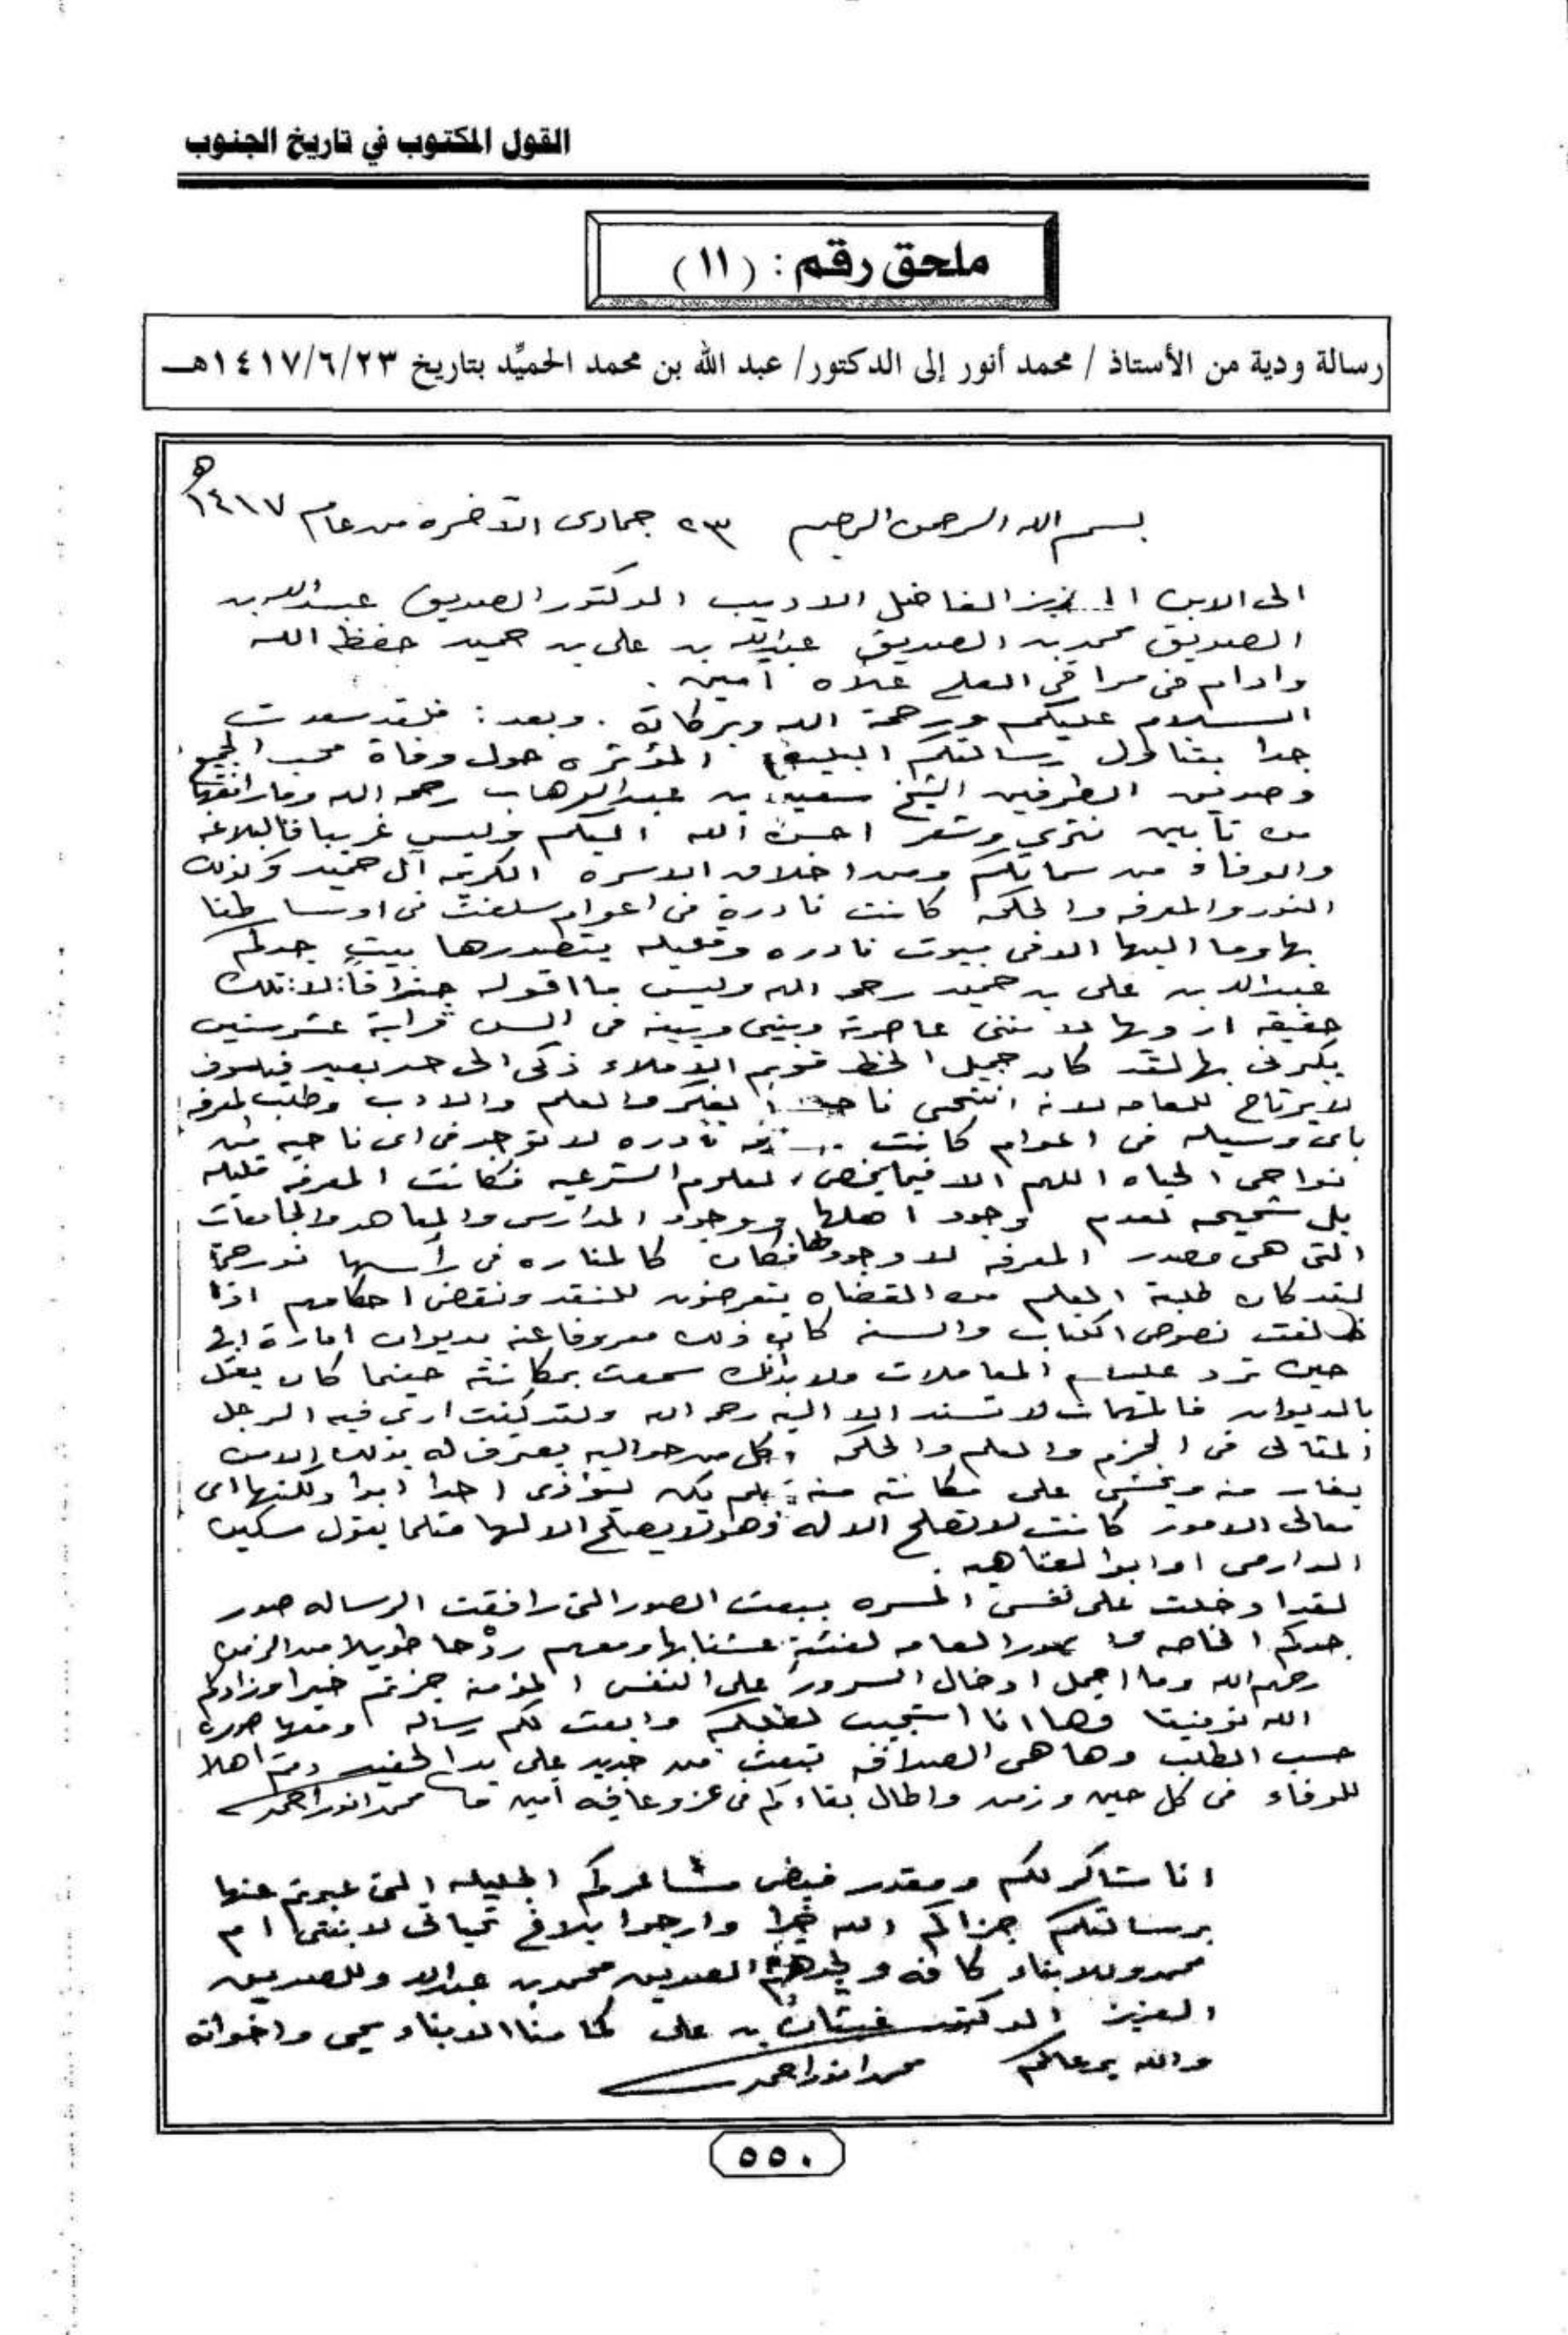 القول المكتوب في تاريخ الجنوب
ملحق رقم : (١١)
رسالة ودية من الأستاذ / محمد أنور إلى الدكتور/ عبد الله بن محمد الحميِّد بتاريخ ١٤١٧/٦/٢٣هـ
بسم الله الرحمن الرحيم ٢٣ جمادى الآخره من عام ١٤١٧هـ
الى الابن العزيز الفاضل الاديب الدكتور الصديق عبدالله بن
الصديق محمد بن الصديق عبدالله بن على بن حميد حفظه الله
وادام فى مراقى العلم علاه آمين .
السلام عليكم ورحمة الله وبركاته . وبعد : فلقد سعدت
جدا بتناول رسالتكم البليغه المؤثره حول وفاة محب الجميع
وصديق الطرفين الشيخ سعيد بن عبدالوهاب رحمه الله وما رافقها
من تأبين نثري وشعر احسن الله اليكم وليس غريبا فالبلاغه
والوفاء من سماتكم ومن اخلاق الاسره الكريمه آل حميد وكذلك
النور والمعرفه والحكمه كانت نادرة فى اعوام سلفت فى اوساطنا
بها وما اليها الا فى بيوت نادره وقليله يتصدرها بيت جدكم
عبدالله بن على بن حميد رحمه الله وليس ما اقوله جزافاً لا تلك
حقيقه ارويها لاننى عاصرته وبينى وبينه فى السن قرابة عشر سنين
يكبرنى بها لقد كان جميل الخط قويم الاملاء ذكى الى حد بعيد فيلسوف
لا يرتاح للعامه لانه انتحى ناحية الفكر والعلم والادب وطلب المعرفه
باى وسيله فى اعوام كانت نادره لا توجد فى اى ناحيه من
نواحى الحياه اللهم الا فيما يخص العلوم الشرعيه فكانت المعرفه قليله
بل شحيحه لعدم وجود اهلها ووجود المدارس والمعاهد والجامعات
التى هى مصدر المعرفه لا وجود لها فكان كالمناره فى رأسها نور
لقد كان طلبة العلم من القضاه يتعرضون للنقد ونقض احكامهم اذا
خالفت نصوص الكتاب والسنه كان ذلك معروفا عنه بديوان امارة ابها
حين ترد عليهم المعاملات ولا بد انك سمعت بمكانته حينما كان يعمل
بالديوان فالمهمات لا تسند الا اليه رحمه الله ولقد كنت ارى فيه الرجل
المثالى فى الحزم والعلم والحكمه وكل من حواليه يعترف له بذلك الا من
يغار منه ويخشى على مكانته منه فلم يكن ليؤذى احدا ابدا ولكنها اى
معالى الامور كانت لا تصلح الا له وهو لا يصلح الا لها مثلما يقول مسكين
الدارمى او ابو العتاهيه .
لقد ادخلت على نفسى المسره ببعث الصور التى رافقت الرساله صور
جدكم الخاصه والصور العامه لفئة عشنا بها ومعهم ردحا طويلا من الزمن
رحمهم الله وما اجمل ادخال السرور على النفس المؤمنه جزيتم خيرا وزادكم
الله توفيقا وها انا استجيب لطلبكم وابعث لكم رساله ومعها صوره
حسب الطلب وها هى الصداقه تبعث من جديد على يد الحفيد دمتم اهلا
للوفاء فى كل حين وزمن واطال بقاءكم فى عز وعافيه آمين محمد انور احمد
انا شاكر لكم ومقدر فيض مشاعركم الجليله التى عبرتم عنها
برسالتكم جزاكم الله خيرا وارجوا بلاغ تحياتى لابنتى ام
محمد وللابناء كافه ولجدهم الصديق محمد بن عبدالله وللصديق
العزيز الدكتور غيثان بن على كما منا الابناء يحى واخوانه
والله يرعاكم محمد انور احمد
٥٥٠